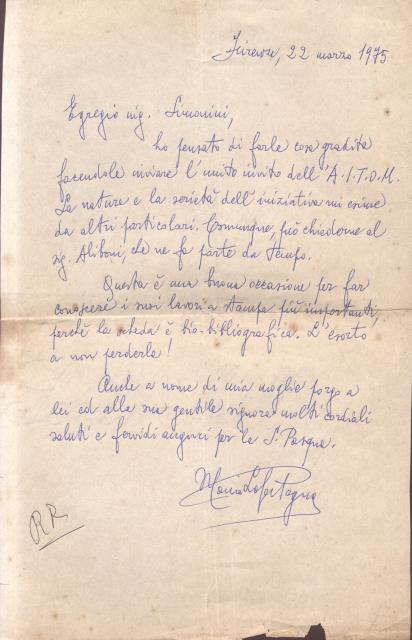 Firenze, 22 marzo 1975
Egregio sig. Simonini,
ho pensato di farle cosa gradita
facendole inviare l'unito invito dell'A.I.T.O.M.
La natura e la serietà dell'iniziativa mi esime
da altri particolari. Comunque, può chiederne al
sig. Aliboni, che ne fa parte da tempo.
Questa è una buona occasione per far
conoscere i suoi lavori a stampa più importanti,
perché la scheda è bio-bibliografica. L'esorto
a non perderla!
Anche a nome di mia moglie porgo a
lei ed alla sua gentile signora molti cordiali
saluti e fervidi auguri per la S. Pasqua.
RR